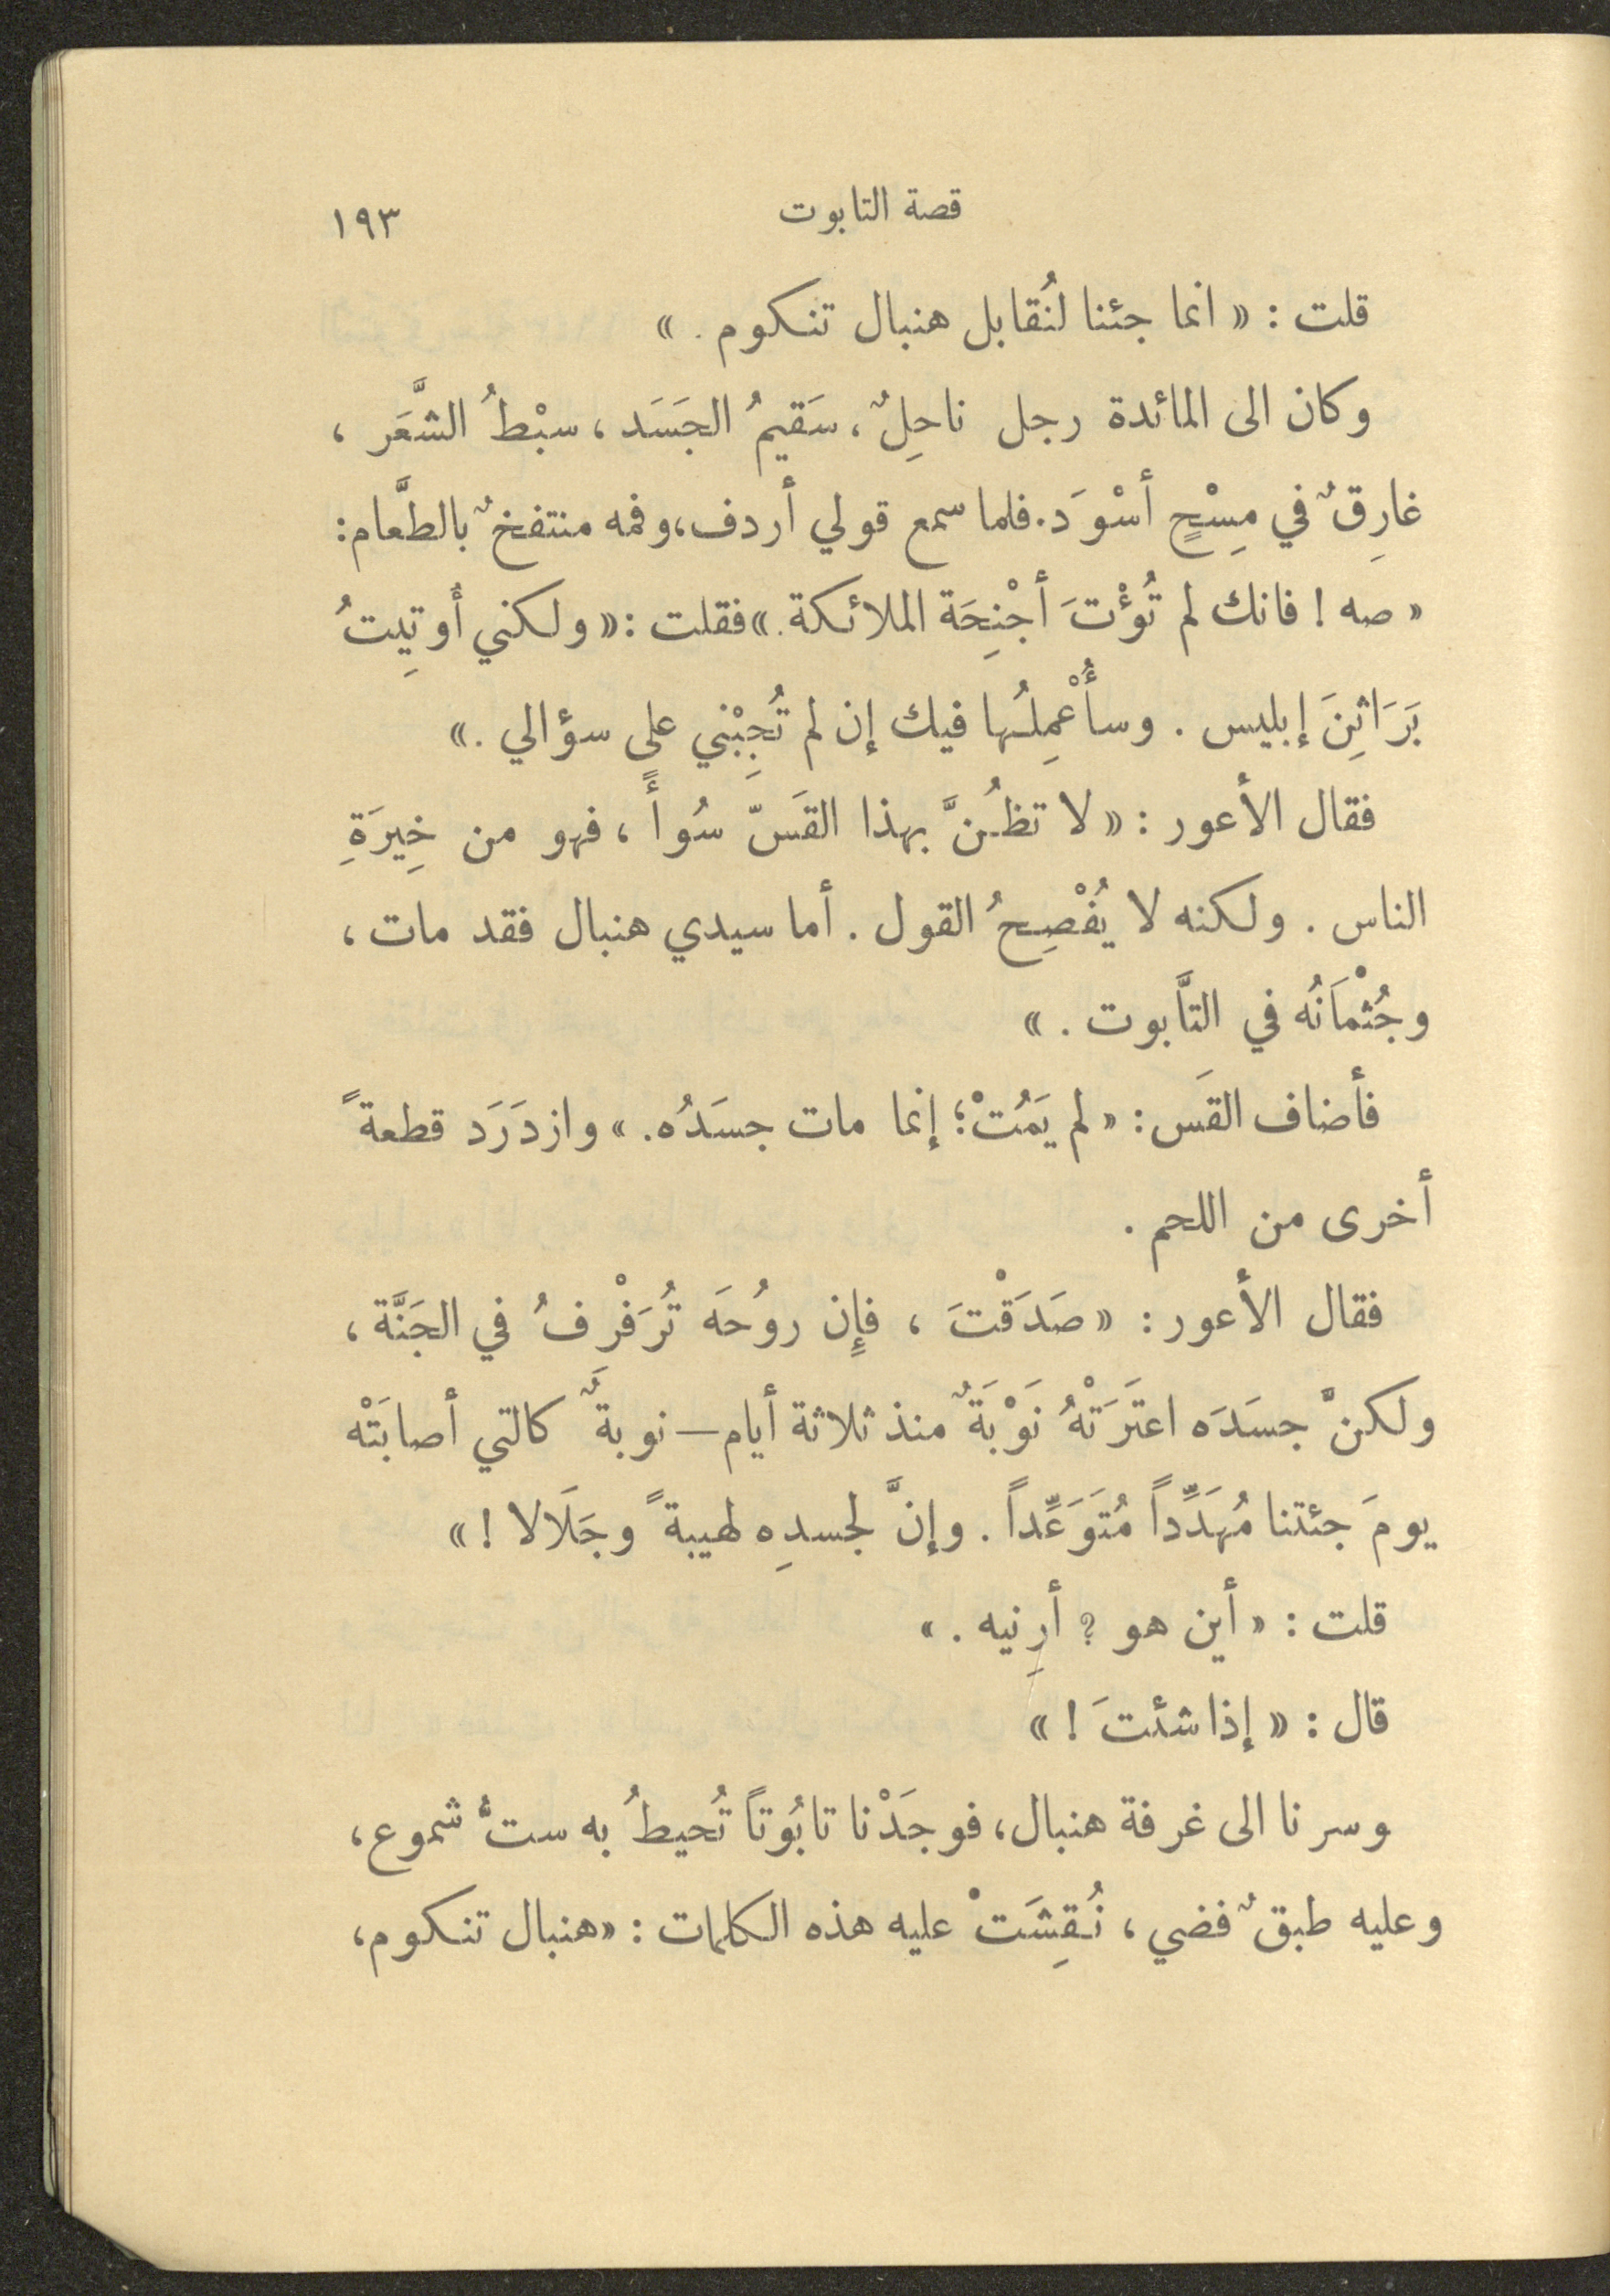 قصة التابوت ١٩٣
قلت : « انما جئنا لنُقابل هنبال تنكوم . »
وكان الى المائدة رجل ناحِلٌ ، سَقيمُ الجَسَد ، سبْطُ الشَّعَر ،
غارِقٌ في مِسْحٍ أسْوَد . فلما سمع قولي أردف ، وفمه منتفخٌ بالطَّعام :
« صه ! فانك لم تُؤْتَ أجْنِحَة الملائكة . » فقلت : « ولكني أُوتِيتُ
بَرَاثِنَ إبليس . وسأُعْمِلُها فيك إن لم تُجِبْني على سؤالي . »
فقال الأعور : « لا تظُنَّ بهذا القَسّ سُوأً ، فهو من خِيرَةِ
الناس . ولكنه لا يُفْصِحُ القول . أما سيدي هنبال فقد مات ،
وجُثْمَانُه في التَّابوت . »
فأضاف القَس : « لم يَمُتْ ؛ إنما مات جسَدُه . » وازدَرَد قطعةً
أخرى من اللحم .
فقال الأعور : « صَدَقْتَ ، فإِن روُحَه تُرَفْرفُ في الجَنَّة ،
ولكنّ جسَدَه اعتَرَتْهُ نَوْبَةٌ منذ ثلاثة أيام — نوبةٌ كالتي أصابَتْه
يومَ جئتنا مُهَدِّداً مُتَوَعِّداً . وإنَّ لجسدِه لهيبةً وجَلَالا ! »
قلت : « أين هو ؟ أرِنيه . »
قال : « إذا شئتَ ! »
وسرنا الى غرفة هنبال ، فوجَدْنا تابُوتاً تُحيطُ به ستُّ شموع ،
وعليه طبقٌ فضي ، نُقِشَتْ عليه هذه الكلمات : « هنبال تنكوم ،